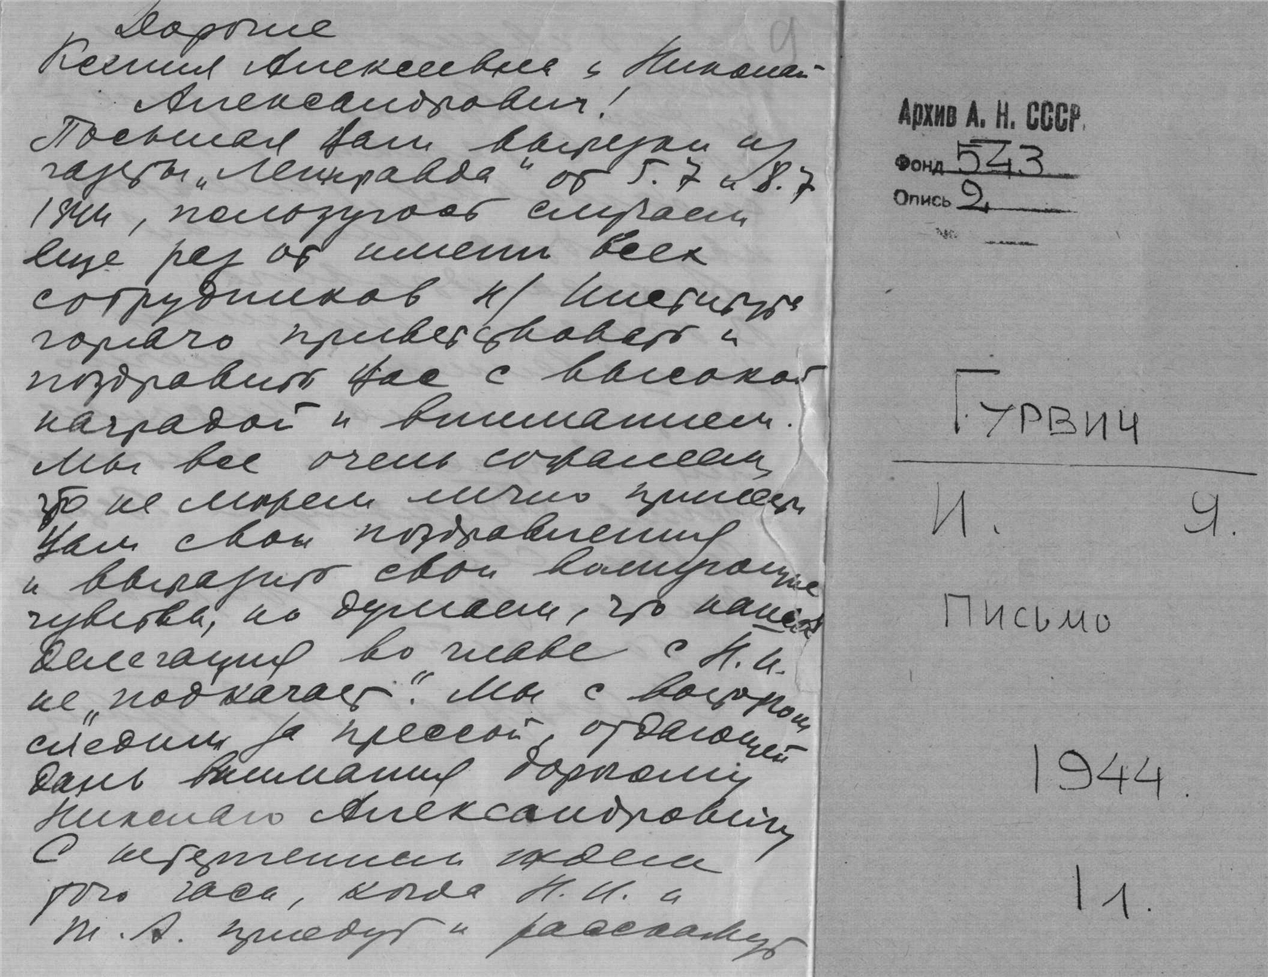 Дорогие
Ксения Алексеевна и Николай
Александрович!
Посылая Вам вырезки из
газеты „Ленправда" от 5.7 и 8.7
1944, пользуюсь случаем
еще раз от имени всех
сотрудников н/ Института
горячо приветствовать и
поздравить Вас с высокой
наградой и вниманием.
Мы все очень сожалеем,
что не можем лично принести
Вам свои поздравления
и выразить свои волнующие
чувства, но думаем, что наша
делегация во главе с Н. И.
не „подкачает". Мы с восторгом
следим за прессой, отдающей
дань внимания дорогому
Николаю Александровичу
С нетерпением ждем
того часа, когда Н. И. и
Т. А. приедут и расскажут
9
Архив А. Н. СССР.
Фонд 543
Опись 2
№
Гурвич
И. Я.
Письмо
1944.
1 л.